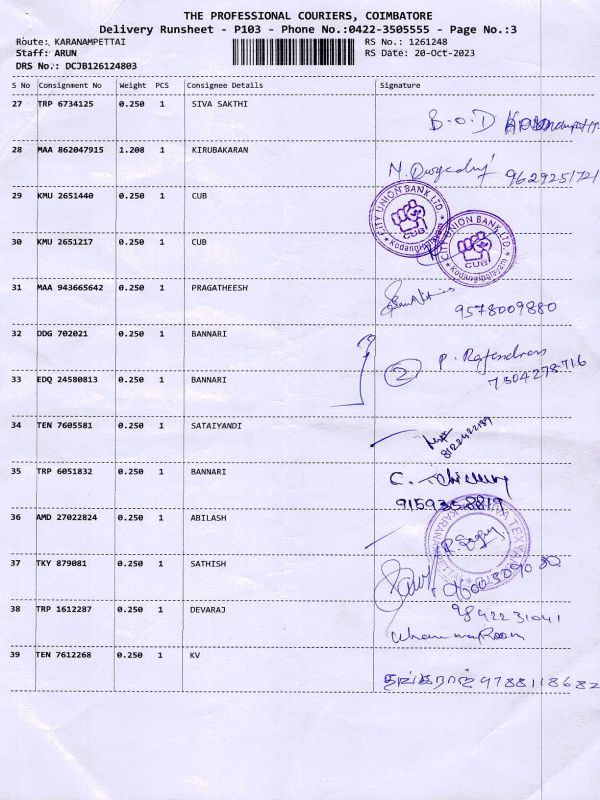 THE PROFESSIONAL COURIERS, COIMBATORE
Delivery Runsheet - P103 - Phone No.:0422-3505555 - Page No.:3
Route: KARANAMPETTAI RS No.: 1261248
Staff: ARUN RS Date: 20-Oct-2023
DRS No.: DCJB126124803
S No Consignment No Weight PCS Consignee Details Signature
27 TRP 6734125 0.250 1 SIVA SAKTHI
B.O.D
28 MAA 862047915 1.208 1 KIRUBAKARAN
9629251721
29 KMU 2651440 0.250 1 CUB
CITY UNION BANK LTD. CUB Kodangipalayam
30 KMU 2651217 0.250 1 CUB
CITY UNION BANK LTD. CUB Kodangipalayam
31 MAA 943665642 0.250 1 PRAGATHEESH
9578009880
32 DDG 702021 0.250 1 BANNARI
2 P. Rajendran
7304278716
33 EDQ 24580813 0.250 1 BANNARI
34 TEN 7605581 0.250 1 SATAIYANDI
8122422189
35 TRP 6051832 0.250 1 BANNARI
C.
9159358819
36 AMD 27022824 0.250 1 ABILASH
37 TKY 879081 0.250 1 SATHISH
38 TRP 1612287 0.250 1 DEVARAJ
9842231041
39 TEN 7612268 0.250 1 KV
தங்கராஜ் 9788118682